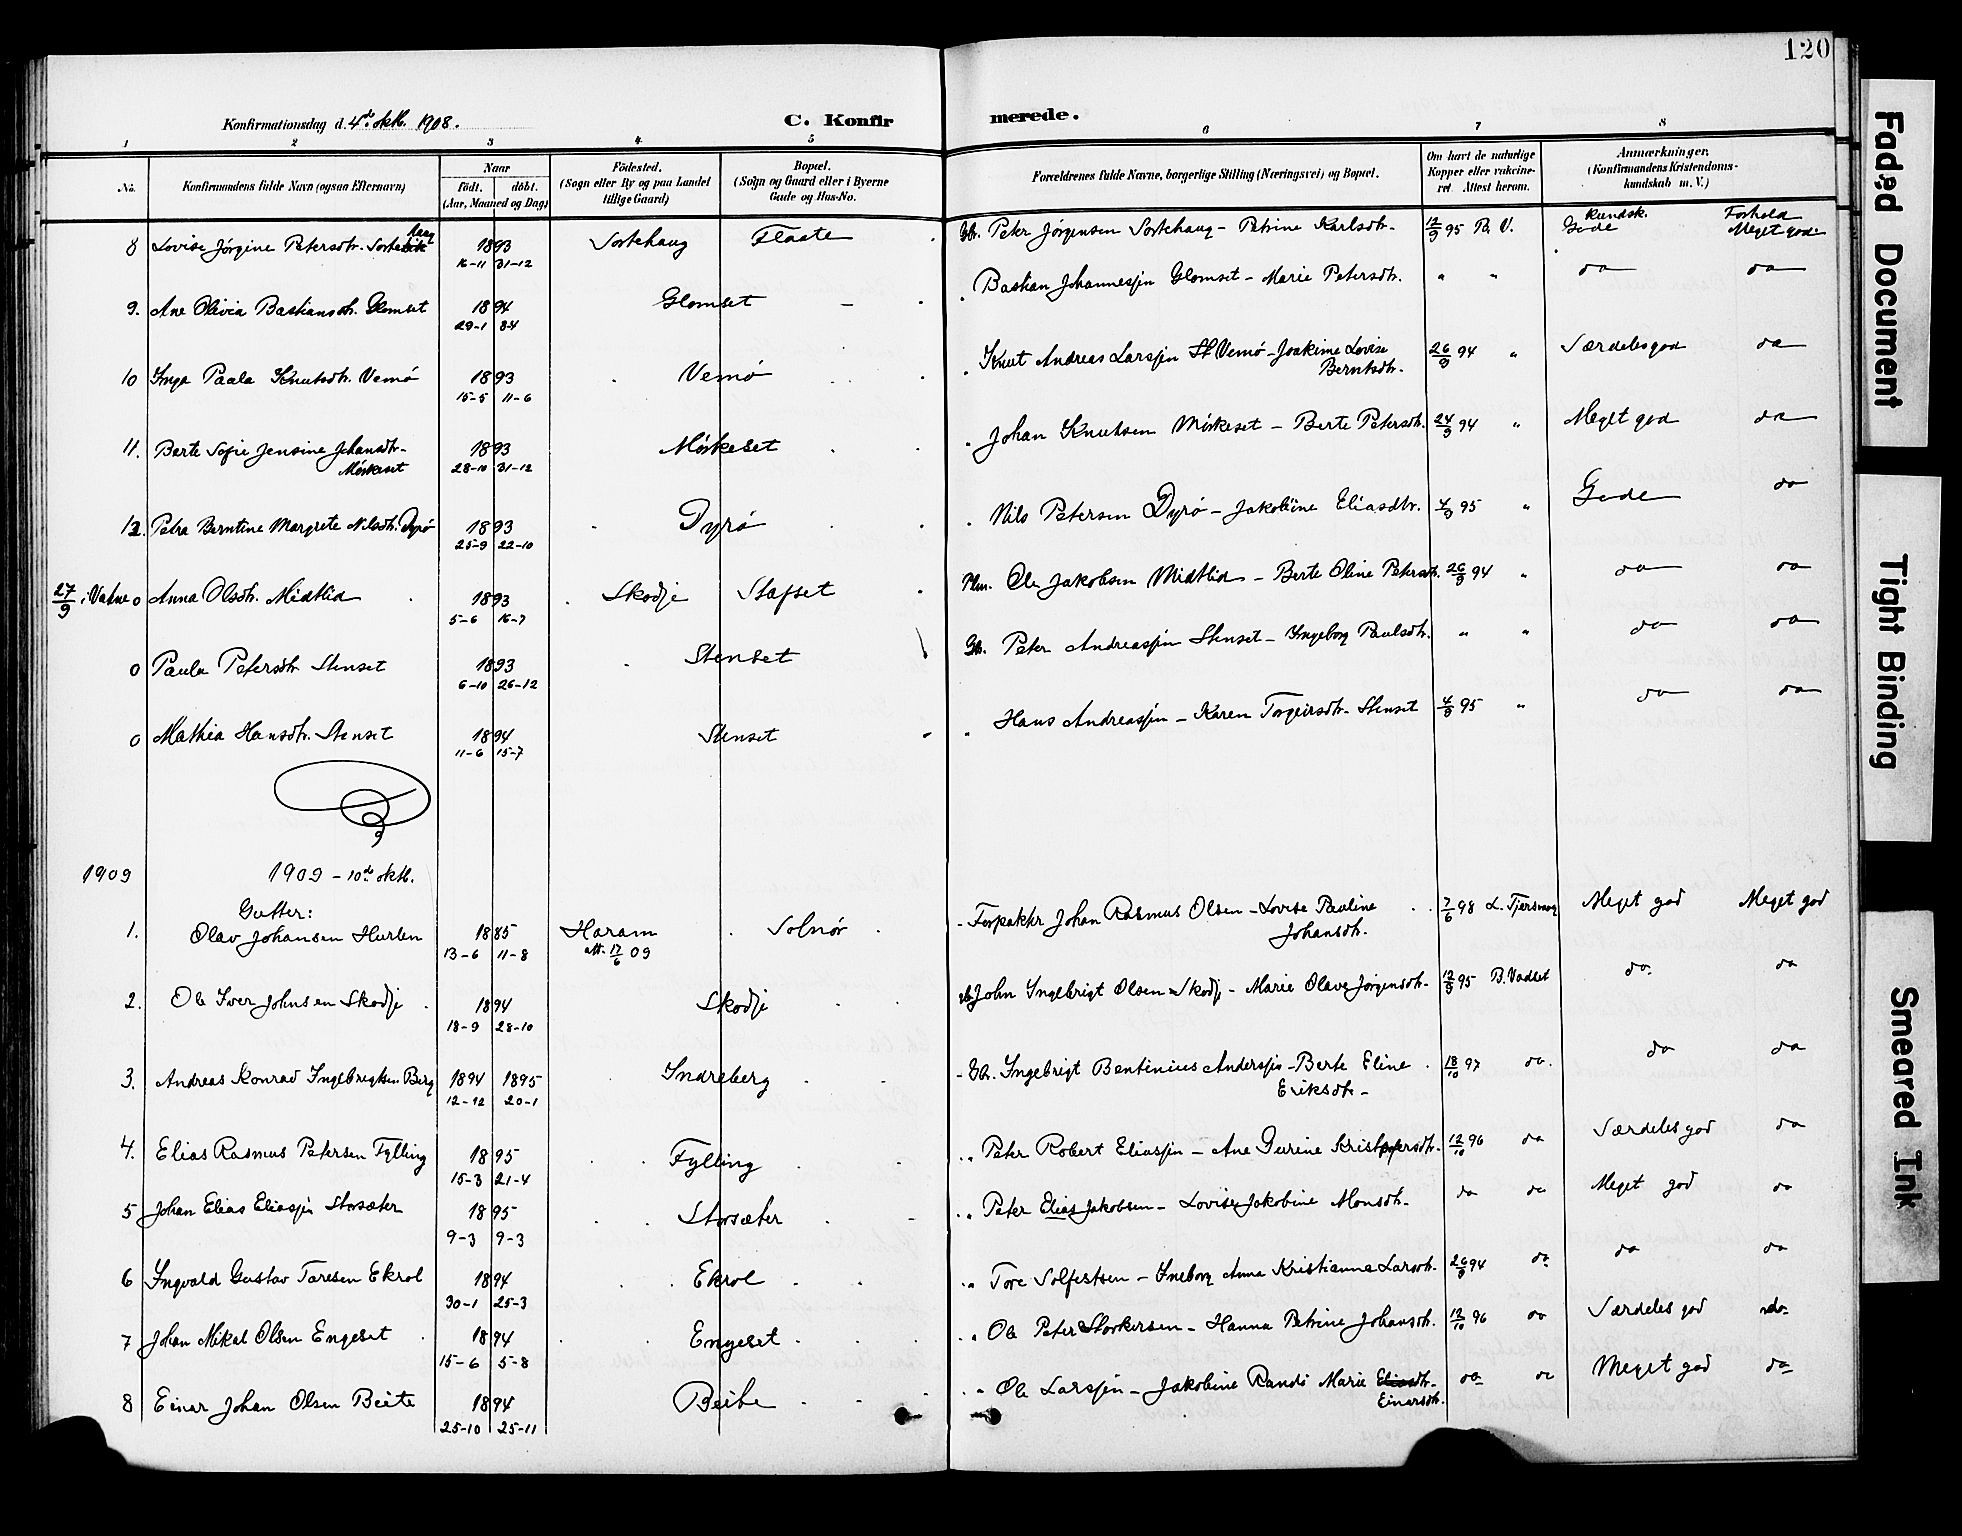 120
Konfirmationsdag d. 4de oktb. 1908.
C. Konfirmerede.
1 2 3 4 5 6 7 8
No. Konfirmandens fulde Navn (ogsaa Efternavn) Naar født. døbt. (Aar, Maaned og Dag) Fødested. (Sogn eller By og paa Landet tillige Gaard) Bopæl. (Sogn og Gaard eller i Byerne Gade og Hus-No. Forældrenes fulde Navne, borgerlige Stilling (Næringsvei) og Bopæl. Om havt de naturlige Kopper eller vakcineret. Attest herom. Anmærkninger. (Konfirmandens Kristendomskundskab m. V.)
Kundsk. Forhold
8 Lovise Jørgine Petersdtr. Sortehaug 1893 16-11 31-12 Sortehaug Flaate Gbr. Peter Jørgensen Sortehaug - Petrine Karlsdtr. 12/9 95 B. V. Gode Meget god
9. Ane Olivia Bastiansdtr. Glomset 1894 29-1 8-4 Glomset Bastian Johannessen Glomset - Marie Petersdtr. " " do do
10 Inga Paala Knutsdtr. Vemø 1893 15-5 11-6 Vemø Knut Andreas Larssen Vemø - Joakime Lovise Berntsdtr. 26/9 94 " Særdeles god do
11. Berte Sofie Jensine Johansdtr. Mørkeset 1893 28-10 31-12 Mørkeset Johan Knutsen Mørkeset - Berte Petersdtr. 24/9 94 " Meget god do
12. Petra Berntine Margrete Nilsdtr. Dyrø 1893 25-9 22-10 Dyrø Nils Petersen Dyrø - Jakobine Eliasdtr. 4/9 95 " Gode do
27/9 i Vatne 0 Anna Olsdtr. Midtlid 1893 5-6 16-7 Skodje Stafset Plm. Ole Jakobsen Midtlid - Berte Oline Petersdtr. 26/9 94 " do do
0 Paula Petersdtr Stenset 1893 6-10 26-12 Stenset Gb. Peter Andreassen Stenset - Ingeborg Paulsdtr. " " do do
0 Mathea Hansdtr. Stenset 1894 11-6 15-7 Stenset " Hans Andreassen - Karen Torgeirsdtr. Stenset 4/9 95 " do do
1909 1909 - 10de oktb.
Gutter:
1. Olav Johansen Hurlen 1885 13-6 11-8 Haram att. 17/6 09 Solnør Forpakter Johan Rasmus Olsen - Lovise Pauline Johansdtr. 7/6 98 L. Meget god Meget god
2. Ole Iver Johnsen Skodje 1894 18-9 28-10 Skodje John Ingebrigt Olsen Skodje - Marie Olave Jørgensdtr. 12/9 95 B. Vadset do. do
3. Andreas Konrad Ingebrigtsen Berg 1894 1895 12-12 20-1 Indreberg Gb. Ingebrigt Bentinius Anderssen - Berte Eline Eriksdtr. 18/10 97 do. do do
4. Elias Rasmus Petersen Fylling 1895 15-3 21-4 Fylling " Peter Robert Eliassen - Ane Gurine Kristofersdtr. 12/10 96 do Særdeles god do
5 Johan Elias Eliassen Storsæter 1895 9-3 9-3 Storsæter " Peter Elias Jakobsen - Lovise Jakobine Monsdtr. do do Meget god do
6 Ingvald Gustav Toresen Ekrol 1894 30-1 25-3 Ekrol " Tore Solfestsen - Ineborg Anna Kristianna Larsdtr. 26/9 94 do. do do
7 Johan Mikal Olsen Engeset 1894 15-6 5-8 Engeset " Ole Peter Storkersen - Hanna Petrine Johansdtr. 12/10 96 do Særdeles god do.
8 Einar Johan Olsen Beite 1894 25-10 25-11 Beite " Ole Larssen - Jakobine Randi Marie Eliasdtr. Einarsdtr. do do Meget god do
Faded Document
Tight Binding
Smeared Ink